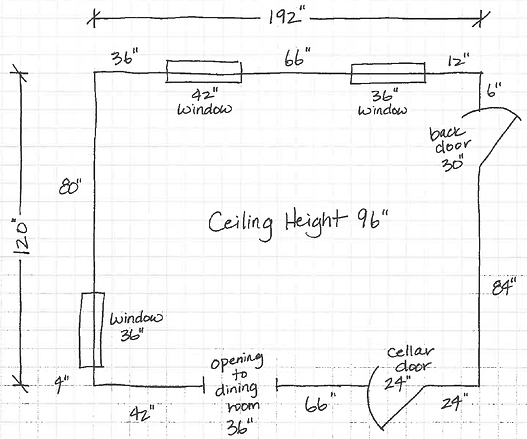 192"
36"
66"
12"
42"
window
36"
window
6"
back
door
30"
80"
120"
Ceiling Height 96"
84"
window
36"
4"
42"
opening
to
dining
room
36"
66"
cellar
door
24"
24"